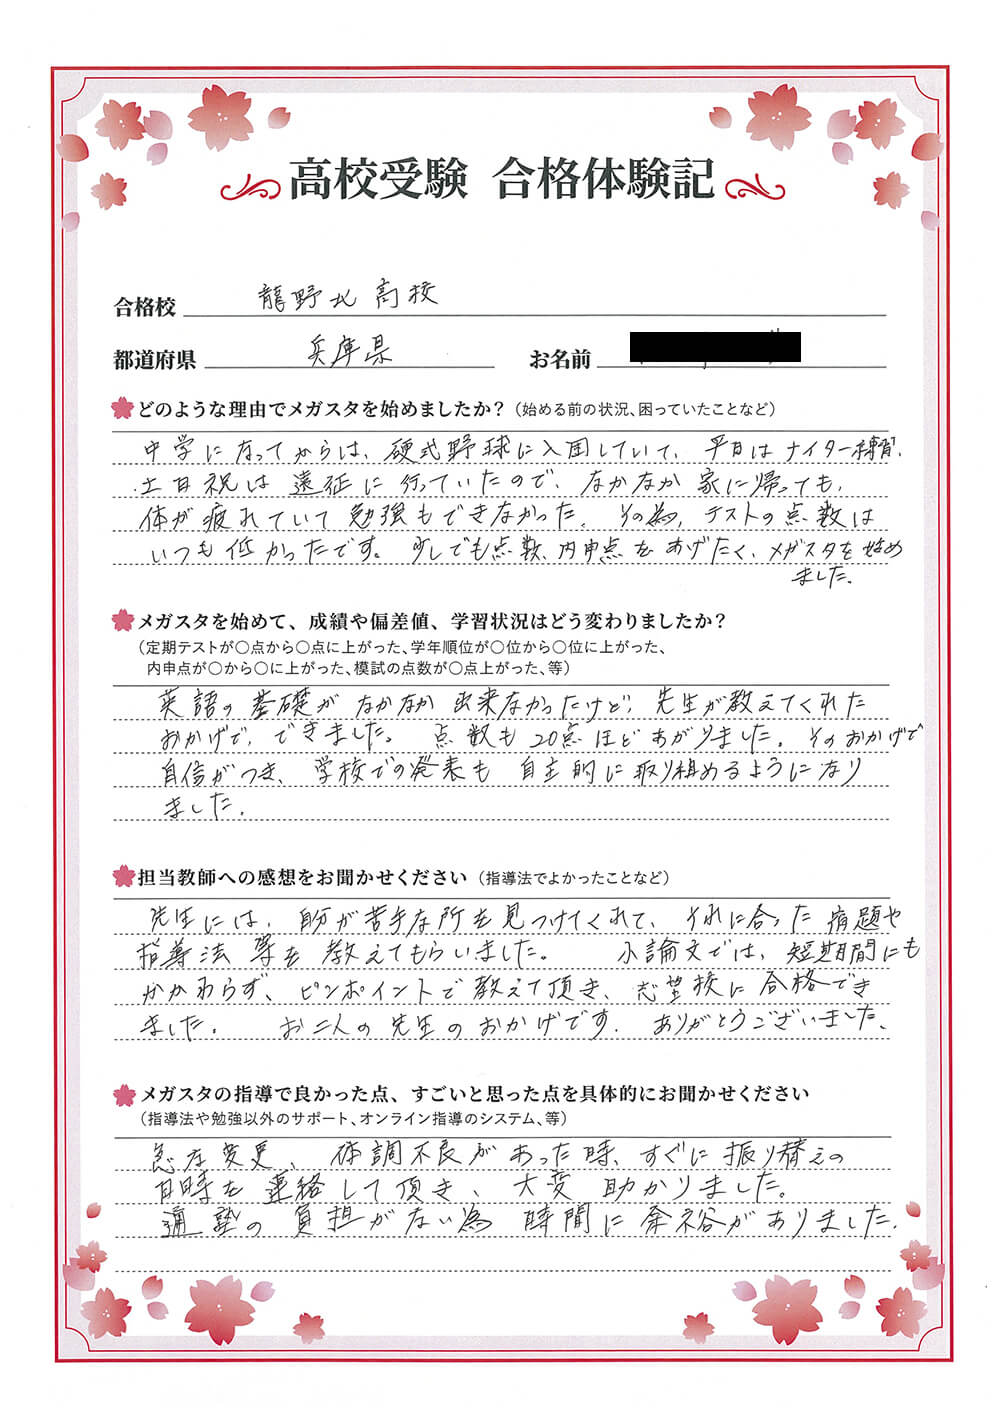 高校受験 合格体験記
合格校 龍野北高校
都道府県 兵庫県 お名前
どのような理由でメガスタを始めましたか？（始める前の状況、困っていたことなど）
中学になってからは、硬式野球に入団していて、平日はナイター練習、
土日祝は遠征に行っていたので、なかなか家に帰っても、
体が疲れていて勉強もできなかった。その為、テストの点数は
いつも低かったです。少しでも点数、内申点をあげたく、メガスタを始め
ました。
メガスタを始めて、成績や偏差値、学習状況はどう変わりましたか？
（定期テストが○点から○点に上がった、学年順位が○位から○位に上がった、
内申点が○から○に上がった、模試の点数が○点上がった、等）
英語の基礎がなかなか出来なかったけど、先生が教えてくれた
おかげで、できました。点数も20点ほどあがりました。そのおかげで
自信がつき、学校での発表も自主的に取り組めるようになり
ました。
担当教師への感想をお聞かせください（指導法でよかったことなど）
先生には、自分が苦手な所を見つけてくれて、それに合った宿題や
指導法等を教えてもらいました。小論文では、短期間にも
かかわらず、ピンポイントで教えて頂き、志望校に合格でき
ました。お二人の先生のおかげです。ありがとうございました。
メガスタの指導で良かった点、すごいと思った点を具体的にお聞かせください
（指導法や勉強以外のサポート、オンライン指導のシステム、等）
急な変更、体調不良があった時、すぐに振り替えの
日時を連絡して頂き、大変助かりました。
通塾の負担がない為時間に余裕がありました。